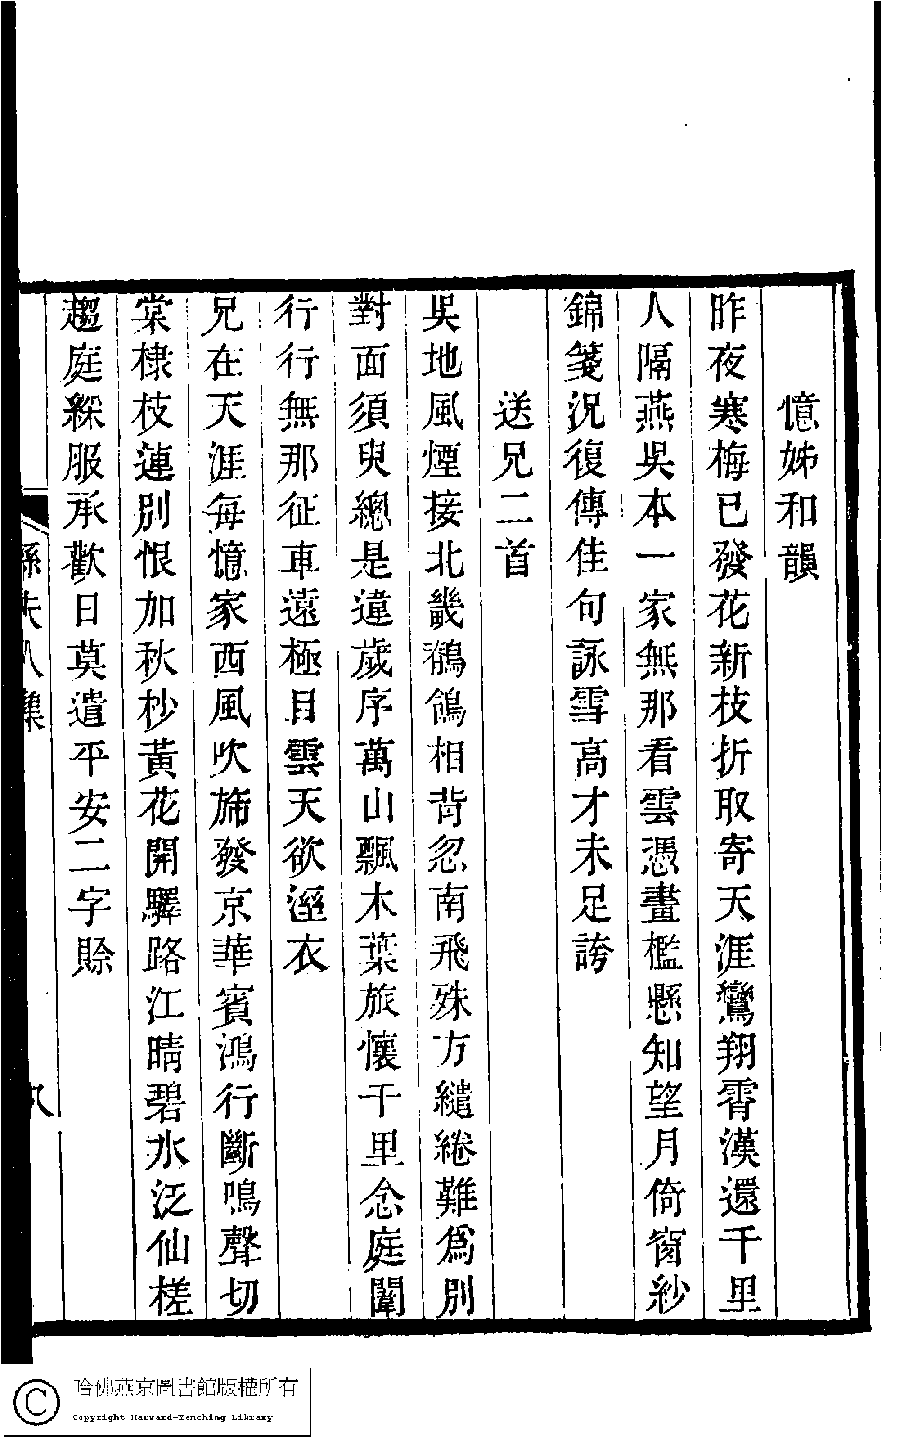 憶姊和韻
昨夜寒梅已發花新枝折取寄天涯鸞翔霄漢還千里
人隔燕吳本一家無那看雲憑畫檻懸知望月倚窗紗
錦箋況復傳佳句詠雪高才未足誇
送兄二首
吳地風煙接北畿鶺鴒相背忽南飛殊方繾綣難爲別
對面須臾總是違歲序萬山飄木葉旅懷千里念庭闈
行行無那征車遠極目雲天欲溼衣
兄在天涯每憶家西風吹旆發京華賓鴻行斷鳴聲切
棠棣枝連別恨加秋杪黃花開驛路江晴碧水泛仙槎
趨庭綵服承歡日莫遣平安二字賒
孫夫人集
八
哈佛燕京圖書館版權所有
Copyright Harvard-Yenching Library